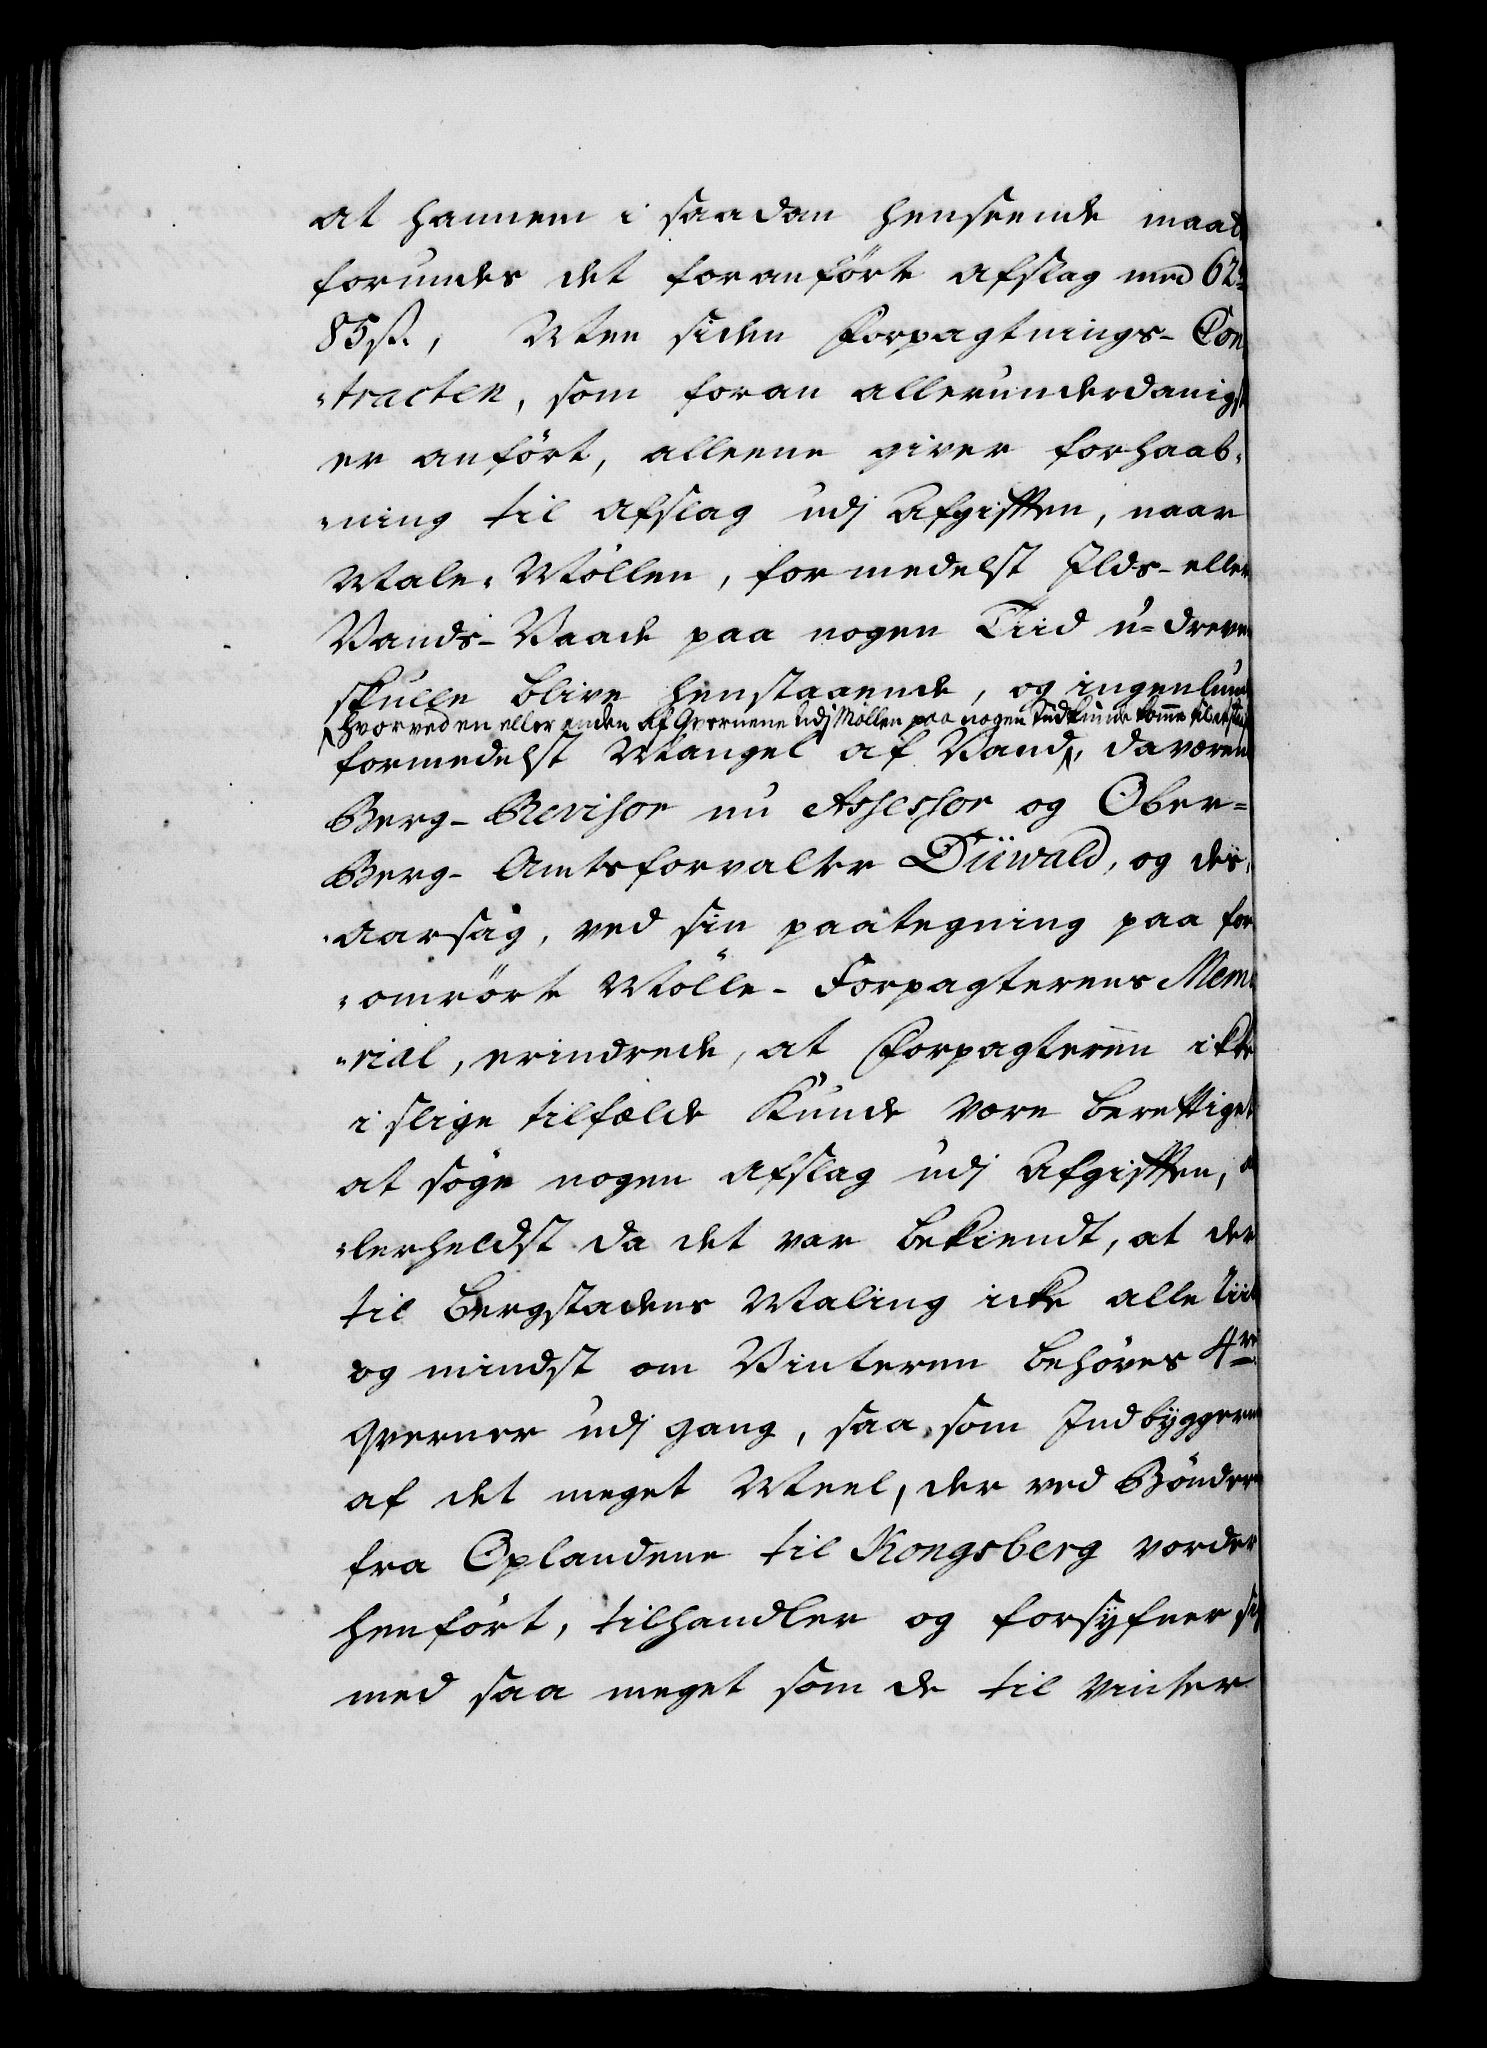 at hannem i saadan henseende maat
forundes det foranførte afslag med 62
85 ß., Men siden Forpagtnings- Con
-tracten, som foran allerunderdanigst
er anført, alleene giver forhaab-
-ning til afslag udj Afgifften, naar
Male-Møllen, formedelst Ilds- eller
Vands-Vaade paa nogen Tiid u-dreven
skulle blive henstaaende, og ingenlund
hvorved en eller anden af Qvernene udj Møllen paa nogen Tid kunde komme til at
formedelst Mangel af Vand, daværen
Berg-Revisor nu Assessor og Ober-
Berg-Amtsforvalter Düwald, og des-
-aarsag, ved sin paategning paa for
-omrørte Mølle-Forpagterens Memo
-rial, erindrede, at Forpagteren ikke
i slige tilfælde kunde være berettiget
at søge nogen afslag udj Afgifften, a
-lerheldst da det var bekiendt, at der
til Bergstadens Maling icke alle Tiid
og mindst om Vinteren behøves 4re
Qverner udj gang, saa som Indbyggerne
af det meget Meel, der ved Bønder
fra Oplandene til Kongsberg vorder
henført, tilhandler og forsyfner sig
med saa meget som de til Vinter